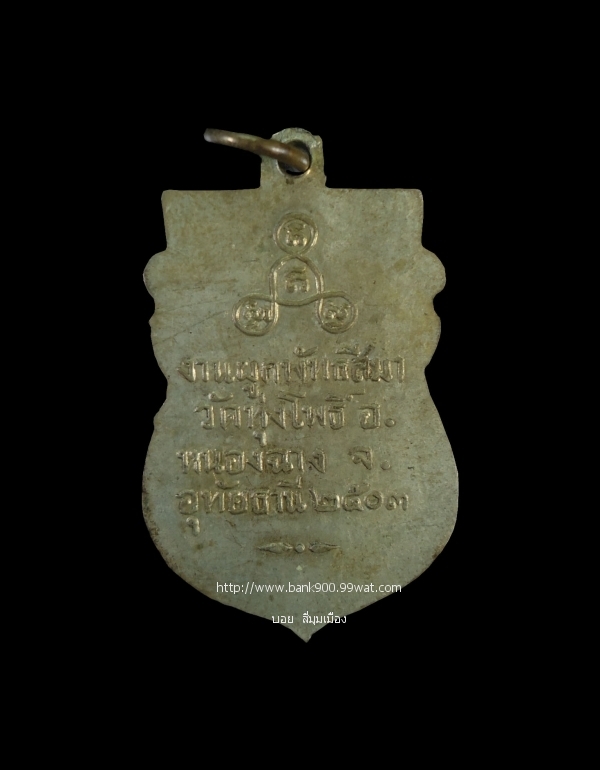 งานผูกพัทธสีมา
วัดทุ่งโพธิ์ อ.
หนองฉาง จ.
อุทัยธานี ๒๕๐๓
http://www.bank900.99wat.com
บอย สี่มุมเมือง